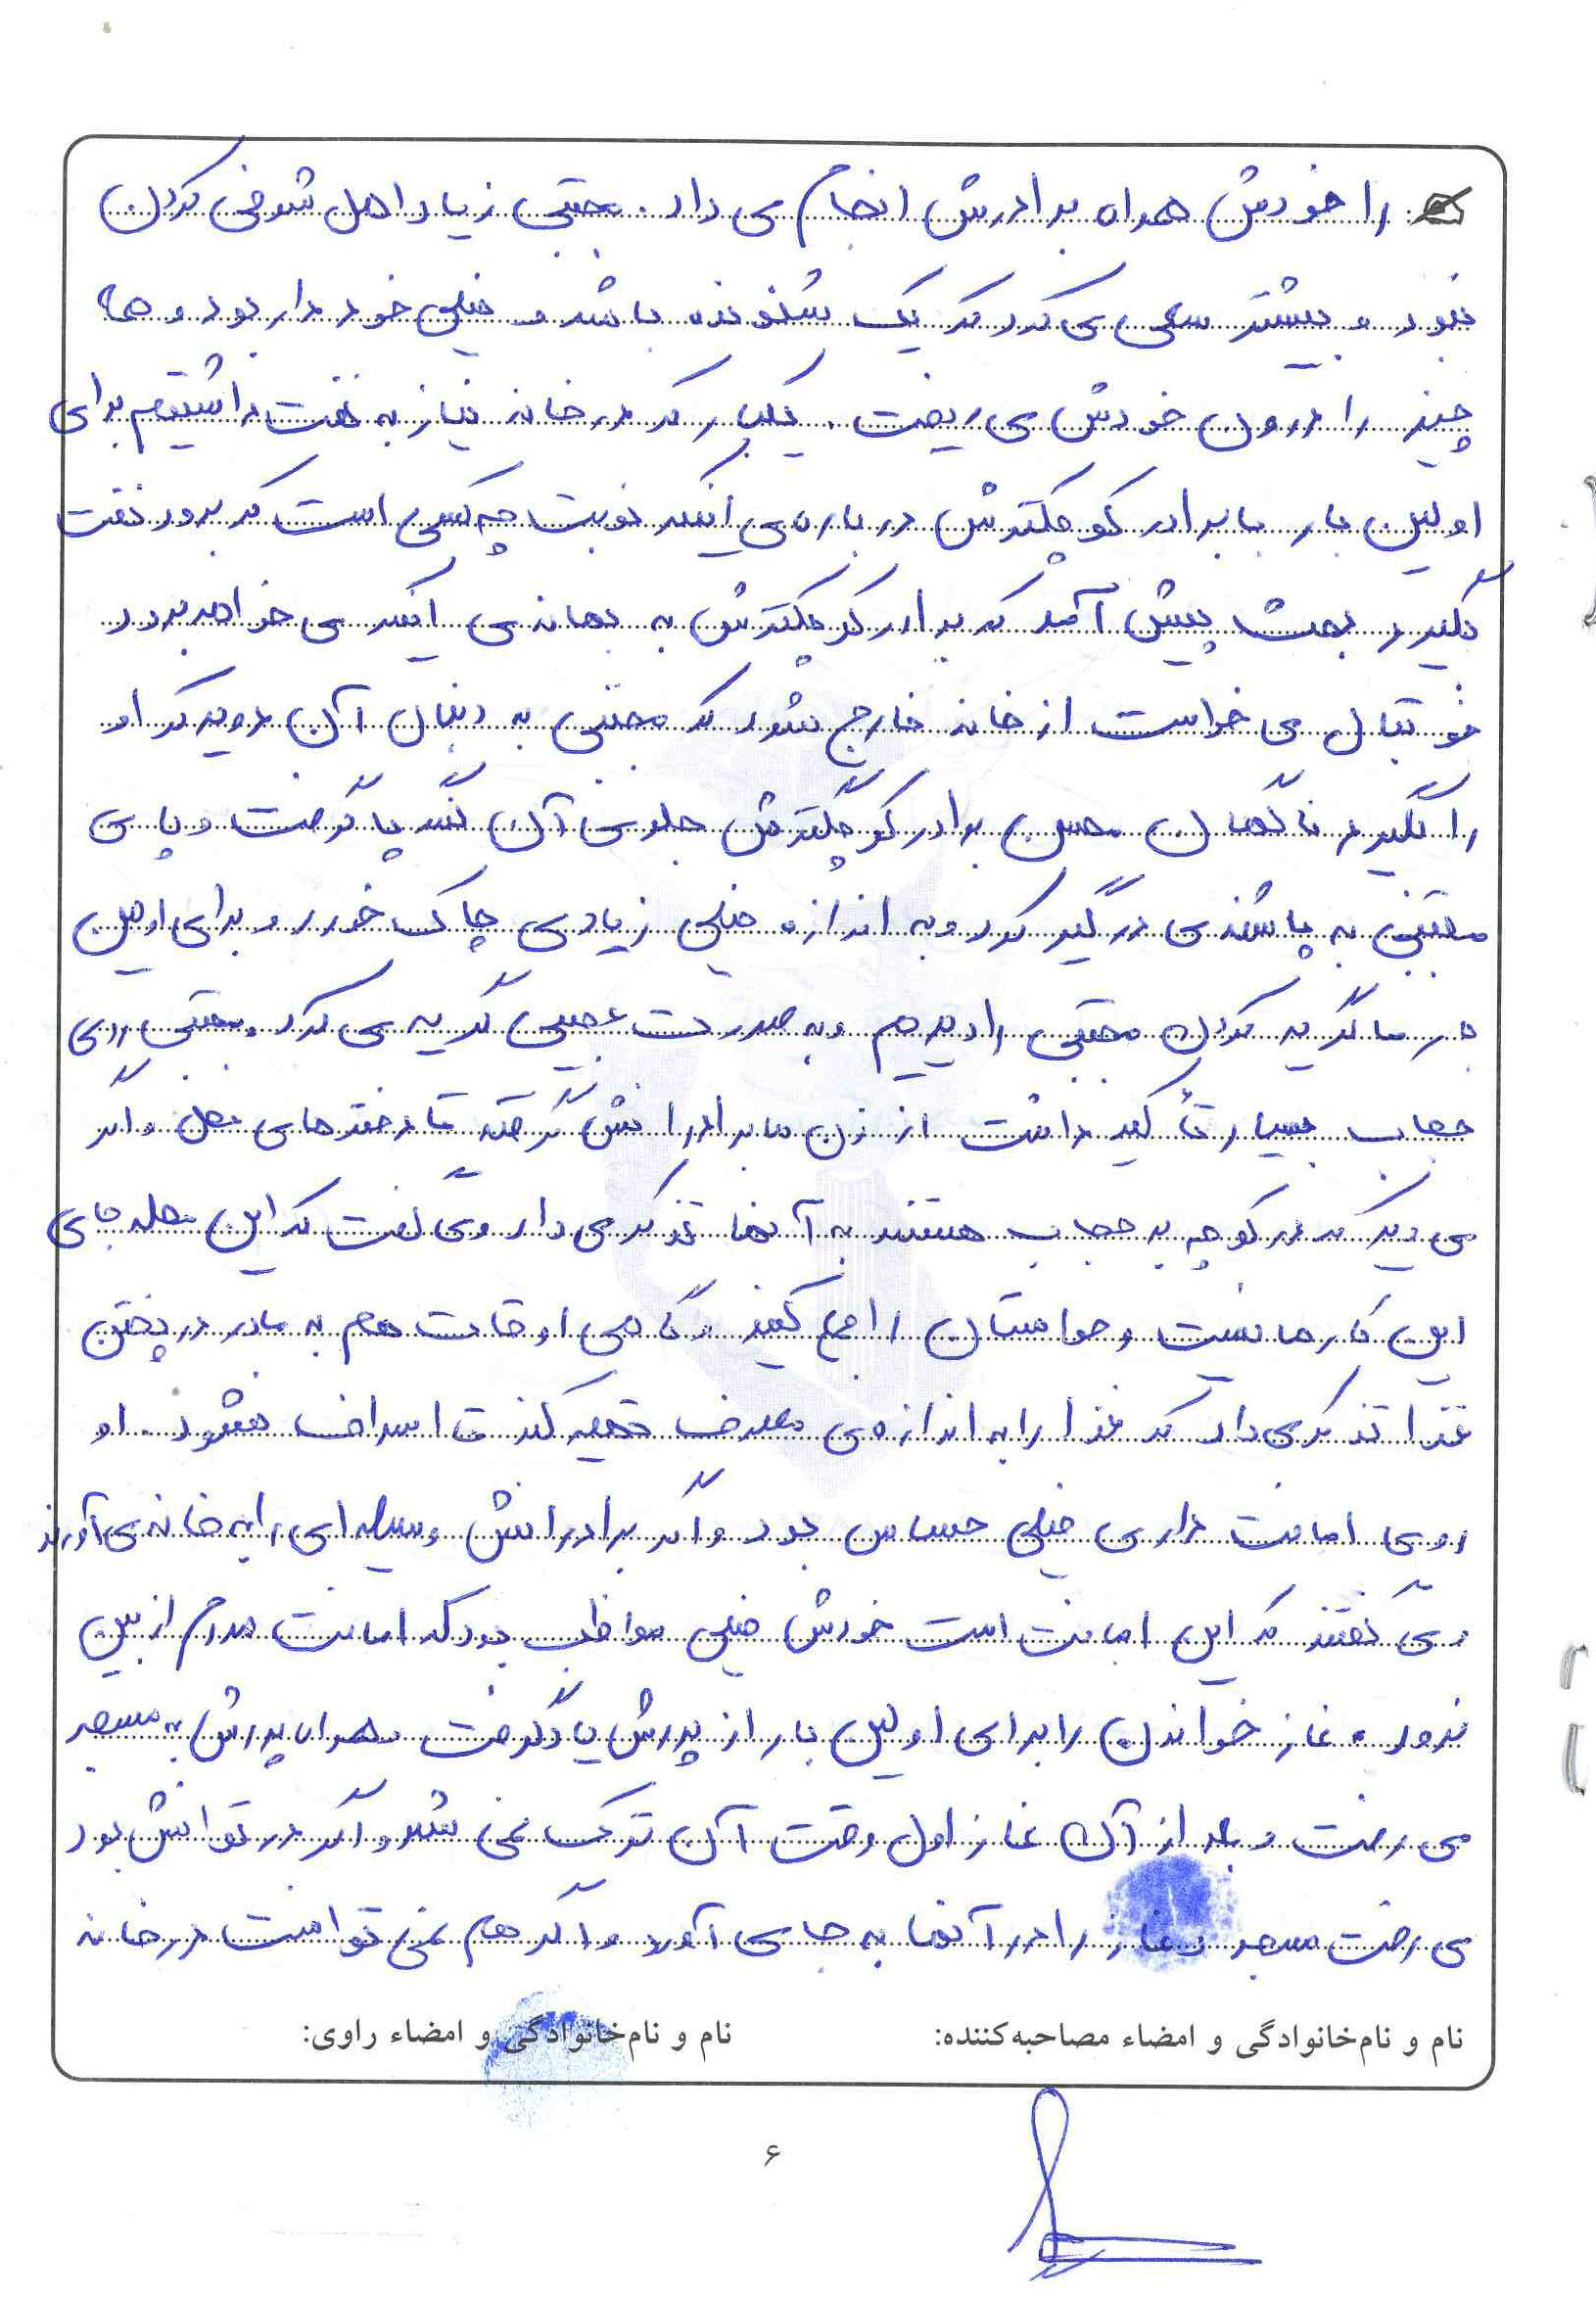 را خودش همراه برادرش انجام می داد. مجتبی زیاد اهل شوخی کردن
نبود و بیشتر سعی می کرد که یک شنونده باشد و خیلی خود دار بود و همه
چیز را درون خودش می ریخت. یکبار که در خانه نیاز به نفت داشتیم برای
اولین بار با برادر کوچکترش در باره ی اینکه نوبت چه کسی است که برود نفت
بگیرد بحث پیش آمد که برادر کوچکترش به بهانه ی اینکه می خواهد برود
فوتبال می خواست از خانه خارج شود که مجتبی به دنبال آن دوید که او
را بگیرد ناگهان محسن برادر کوچکترش جلوی آن لنگه پا گرفت و پای
مجتبی به پاشنه ی در گیر کرد و به اندازه خیلی زیادی چاک خورد و برای اولین
بار ما گریه کردن مجتبی را دیدیم و به صورت عجیبی گریه می کرد. مجتبی روی
حجاب بسیار تأکید داشت از زن برادرانش گرفته تا دخترهای محل و اگر
می دید که در کوچه بد حجاب هستند به آنها تذکر می داد و می گفت که این محله جای
این کارها نیست و حواستان را جمع کنید و گاهی اوقات هم به مادر در پختن
غذا تذکر می داد که غذا را به اندازه ی مصرف تهیه کند تا اسراف نشود. او
روی امانت داری خیلی حساس بود و اگر برادرانش وسیله ای را به خانه می آوردند
و می گفتند که این امانت است خودش خیلی مواظب بود که امانت مردم از بین
نرود. نماز خواندن را برای اولین بار از پدرش یاد گرفت و همراه پدرش به مسجد
می رفت و بعد از آن نماز اول وقت آن ترک نمی شد و اگر در توانش بود
می رفت مسجد و نماز را در آنجا به جای آورد و اگر هم نمی توانست در خانه
نام و نام‌خانوادگی و امضاء مصاحبه‌کننده: نام و نام‌خانوادگی و امضاء راوی:
۶